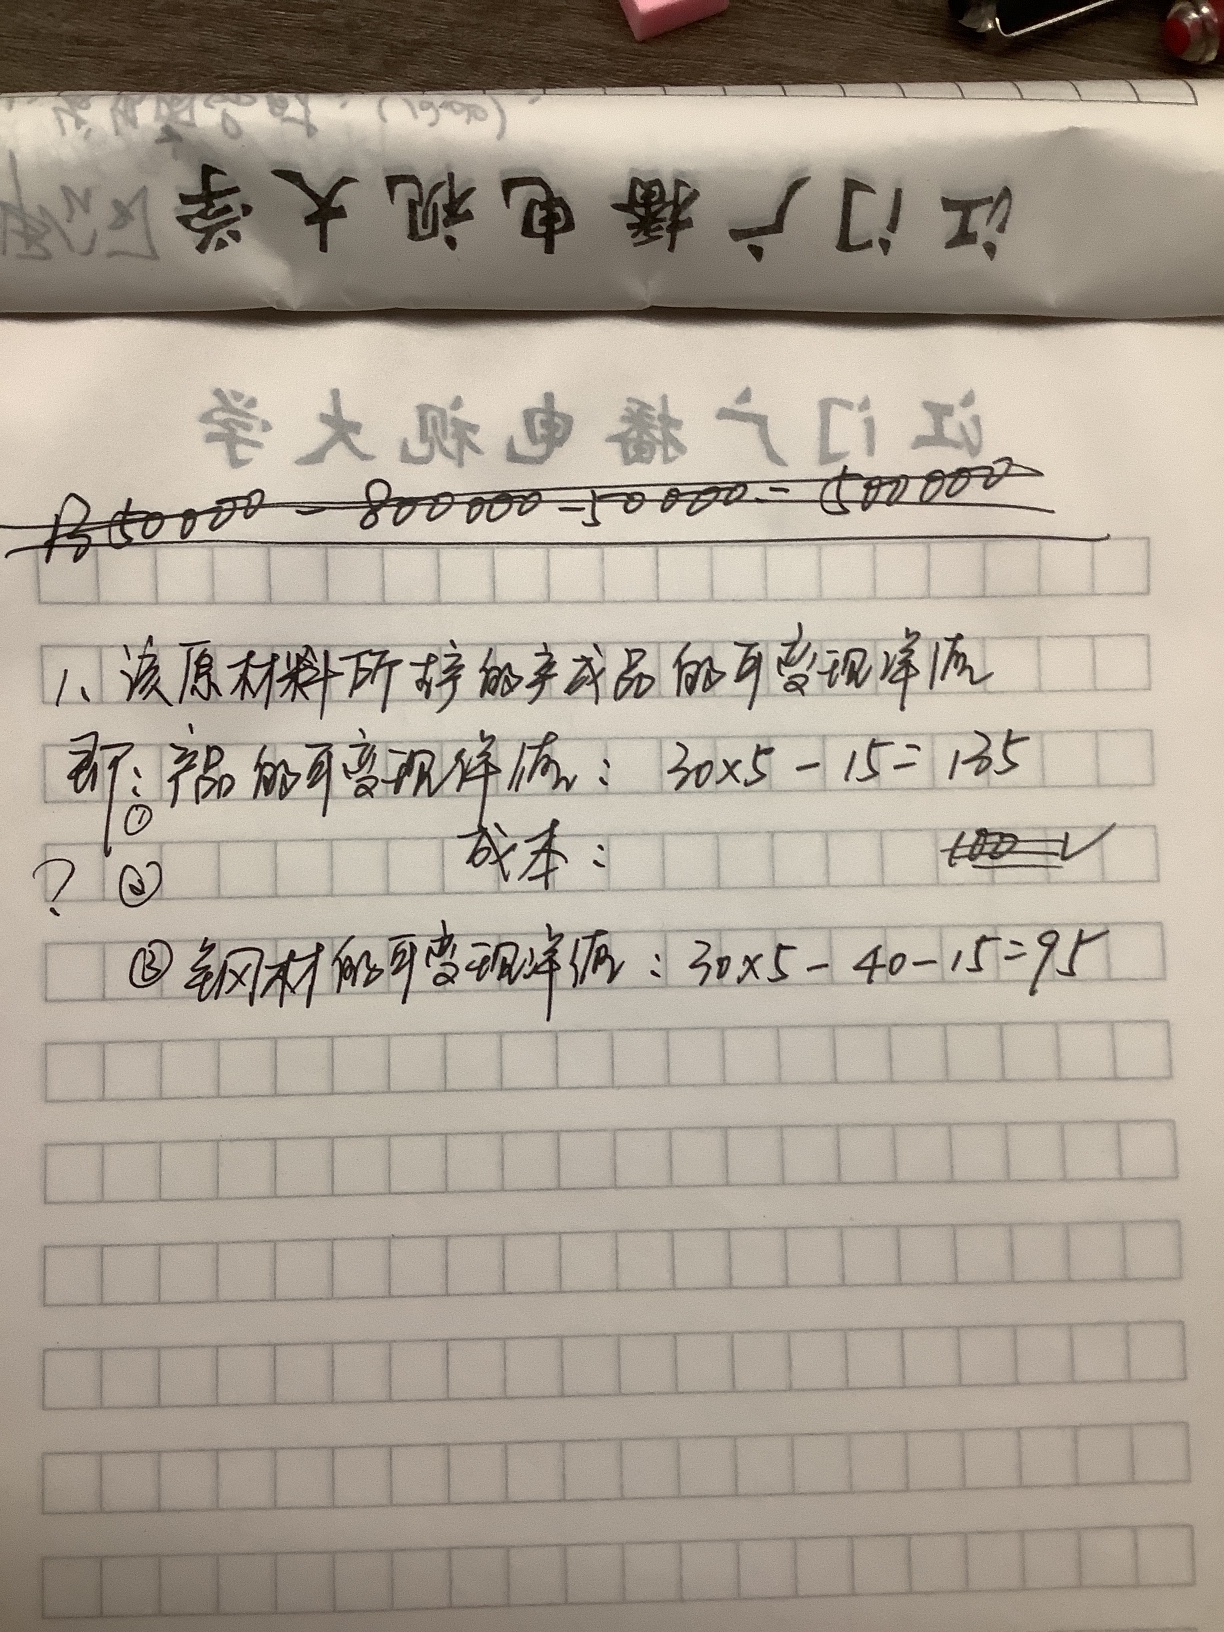 江门广播电视大学
江门广播电视大学
1350000-800000-50000=500000
1、该原材料所产的产成品的可变现净值
即:①产品的可变现净值: 30×5-15=135
? ② 成本: 100
③钢材的可变现净值:30×5-40-15=95